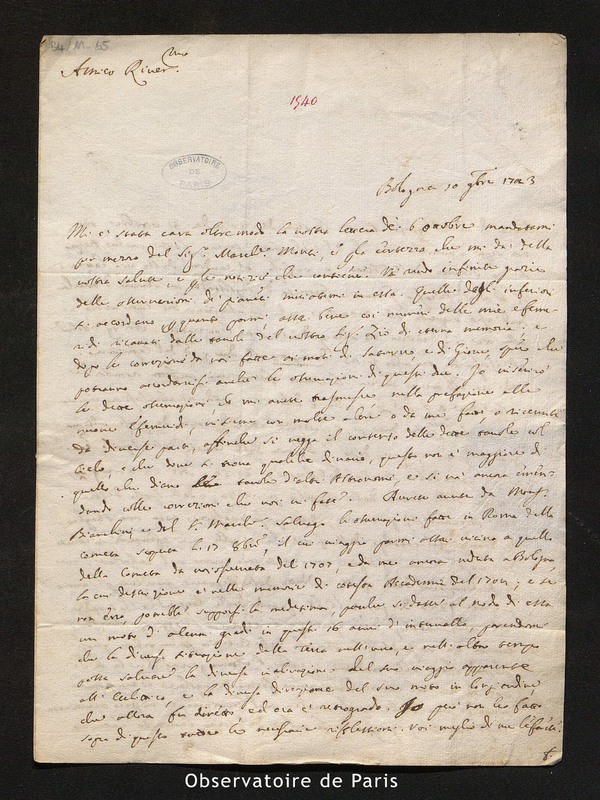 B4/M-65
Amico River.mo
1540
OBSERVATOIRE
DE
PARIS
Bologna 10 9bre 1723
Mi è stata cara oltre modo la vostra lettera de' 6 ottobre mandatami
per mezzo del Sig.r Monti, e per la certezza che mi dà della
vostra salute, e per le notizie che contiene. Vi rendo infinite grazie
delle osservazioni di pianeti inviatemi in essa. Quelle degl' inferiori
si accordano per quanto parmi assai bene coi numeri delle mie efeme-
ridi ricavati dalle tavole del vostro Sig.r Zio di eterna memoria; e
dopo le correzioni da voi fatte ai moti di Saturno, e di Giove, spero che
potranno accordarsi anche le osservazioni di questi due. Io inserirò
le dette osservazioni che mi avete trasmesse nella prefazione alle
nuove efemeridi, insieme con molte altre o da me fatte o ricevute
da diverse parti, affinchè si vegga il consenso delle dette tavole col
Cielo, e che dove si trova qualche divario, questo non è maggiore di
quello che diano le tavole d'altri Astronomi, e si va ancora emen-
dando colle correzioni che voi ci fate. Avrete avute da Mons.r
Bianchini, e dal S. Maraldi le osservazioni fatte in Roma della
cometa scoperta li 17 8bre, il cui viaggio parmi assai vicino a quello
della Cometa da voi osservata del 1707, e da me ancora veduta a Bologna
la cui descrizione è nelle memorie di cotesta Accademia del 1707; e se
non erro, potrebbe supporsi la medesima, purchè si dasse al nodo di essa
un moto di alcuni gradi in questi 16 anni di intervallo, parendomi
che la diversa situazione della Terra nell'uno, e nell'altro tempo
possa salvare la diversa inclinazione del suo viaggio apparente
all' Eclittica, e la diversa direzione del suo moto in longitudine
che allora fu diretto ed ora è retrogrado. Io però non ho fatto
sopra di questo tutte le necessarie riflessioni. Voi meglio di me
Observatoire de Paris